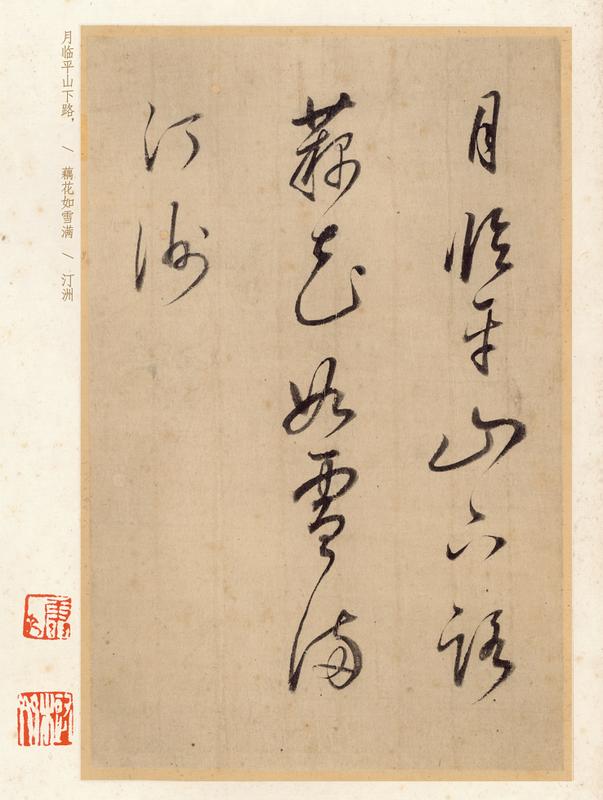 月臨平山下路
藕花如雪滿
汀洲
月临平山下路，\ 藕花如雪满 \ 汀洲